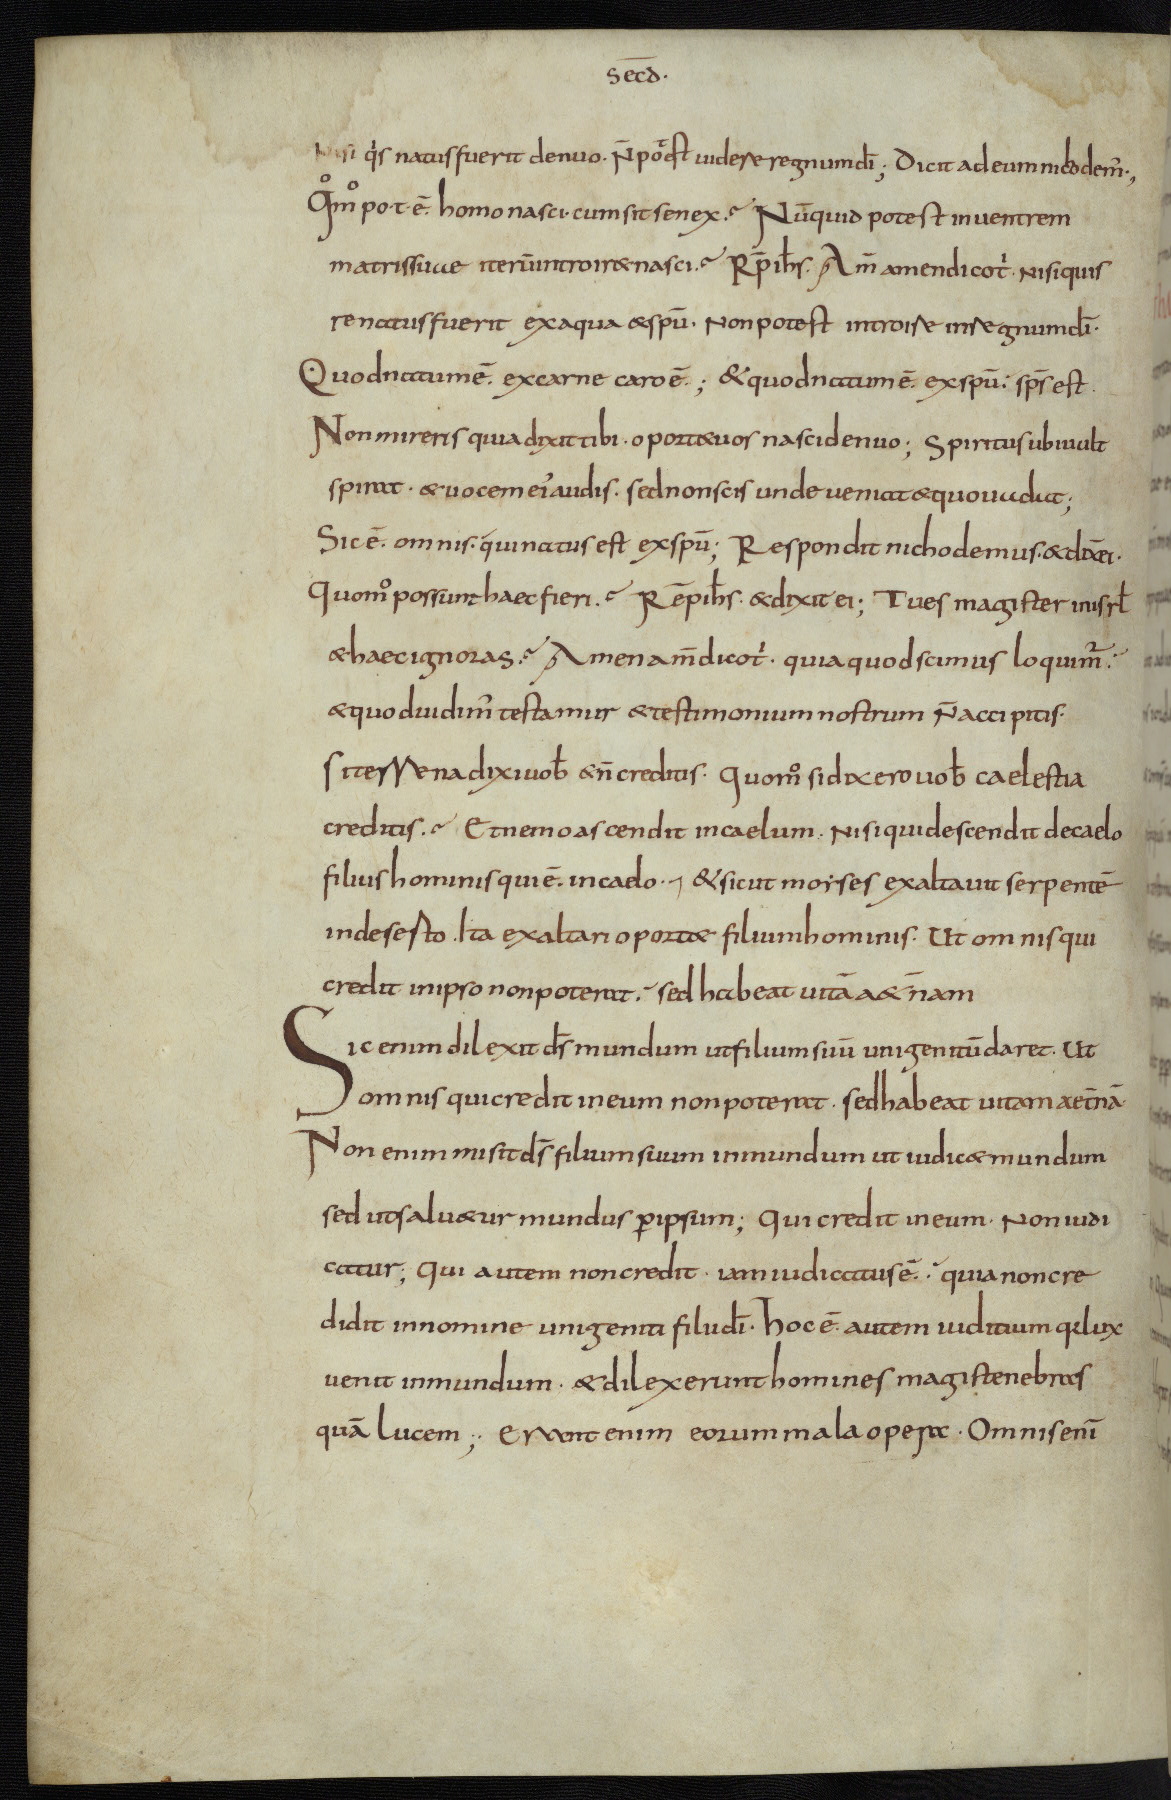 Sēcd·
Nisi qͥs natus fuerit denuo· N̄ potͣest uidere regnum dī; Dicit ad eum nicodem̅·,
Qͦmͦ po·t·ē· homo nasci· cum sit senex·? Nūquid potest in uentrem
matris suae iterū introire & nasci·? Rp̄ ihs̄· Am̄ amen dico tͥ· Nisi quis
renatus fuerit ex aqua & spū· Non potest introire in regnum dī·
Quod natum ē· ex carne caro ē·; & quod natum ē· ex spū· sps̄ est·
Non mireris quia dixi tibi· oport& uos nasci denuo; Spiritus ubi uult
spirat· & uocem ei᾽ audis· sed non scis unde ueniat & quo uadat;
Sic ē· omnis· qui natus est ex spū; Respondit nichodemus· & dix̄ ei·
Quomͦ possunt haec fieri·? Rēp ihs̄· & dixit ei; Tu es magister in isrl̄
& haec ignoras·? Amen am̄ dico tͥ· quia quod scimus loquim᷑·
& quod uidim᾽ testamur & testimonium nostrum n̄ accipitis·
si terrena dixi uob̄ & n̄ creditis· Quomͦ si dixero uob̄ caelestia
creditis·? Et nemo ascendit in caelum· Nisi qui descendit de caelo
filius hominis qui ē· in caelo· & sicut moises exaltauit serpentē
in deserto· Ita exaltari oport& filium hominis· Ut omnis qui
credit in ipso non poterat· sed habeat uitā a&n̄am
Sic enim dilexit ds̄ mundum ut filium suū unigenitū daret· Ut
omnis qui credit in eum non poterat· sed habeat uitam aet̄nā·
Non enim misit ds̄ filium suum in mundum ut iudic& mundum
sed ut salu&ur mundus ꝑ ipsum; Qui credit in eum· Non iudi
catur; Qui autem non credit· iam iudicatus ē·· quia non cre
didit in nomine unigeniti filii dī· Hoc ē· autem iuditium q᷑ lux
uenit in mundum· & dilexerunt homines magis tenebras
quā lucem;· Erant enim eorum mala opera· Omnis enī